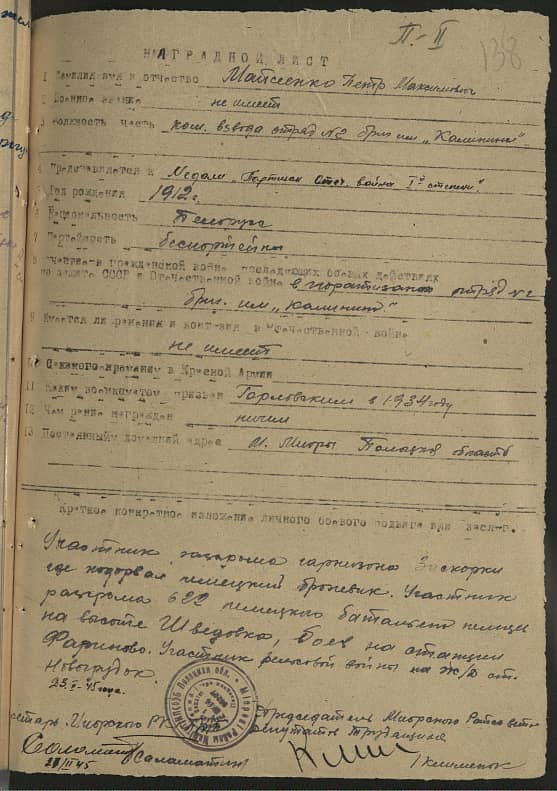 П-II
138
НАГРАДНОЙ ЛИСТ
1 Фамилия имя и отчество Майсеенко Петр Максимович
2 Военное звание не имеет
3 Должность часть ком. взвода отряд №2 бриг им „Калинина".
4 Представляется к Медали „Партизан Отеч. война I й степени".
5 Год рождения 1912 г.
6 Национальность Белорус
7 Партейность беспартейный
8 Участие в гражданской войне последующих боевых действиях
по защите СССР и Отечественной войне в партизанск отряд №2
бриг. им „Калинина"
9 Имеется ли ранения и контузия в Отечественной войне
не имеет
10 в Красной Армии
11 Каким военкоматом призван Горловским в 1934 году
12 Чем ранее награжден ничем
13 Постоянный домашний адрес м. Миоры Полацкой область
Краткое конкретное изложение личного боевого подвига или заслуг.
Участник разгрома гарнизона Заскорки
где подорвал немецкий броневик. Участник
разгрома 622 немецкого батальена
на высоте Шведовка, боев на станции
Фариново. Участник рельсовой войны на ж/д ст.
Новогрудок.
45 года.
Миорского РК Председатель Миорского Райсовета
депутатов Трудящихся
/Саламатин/
/Клименок
45